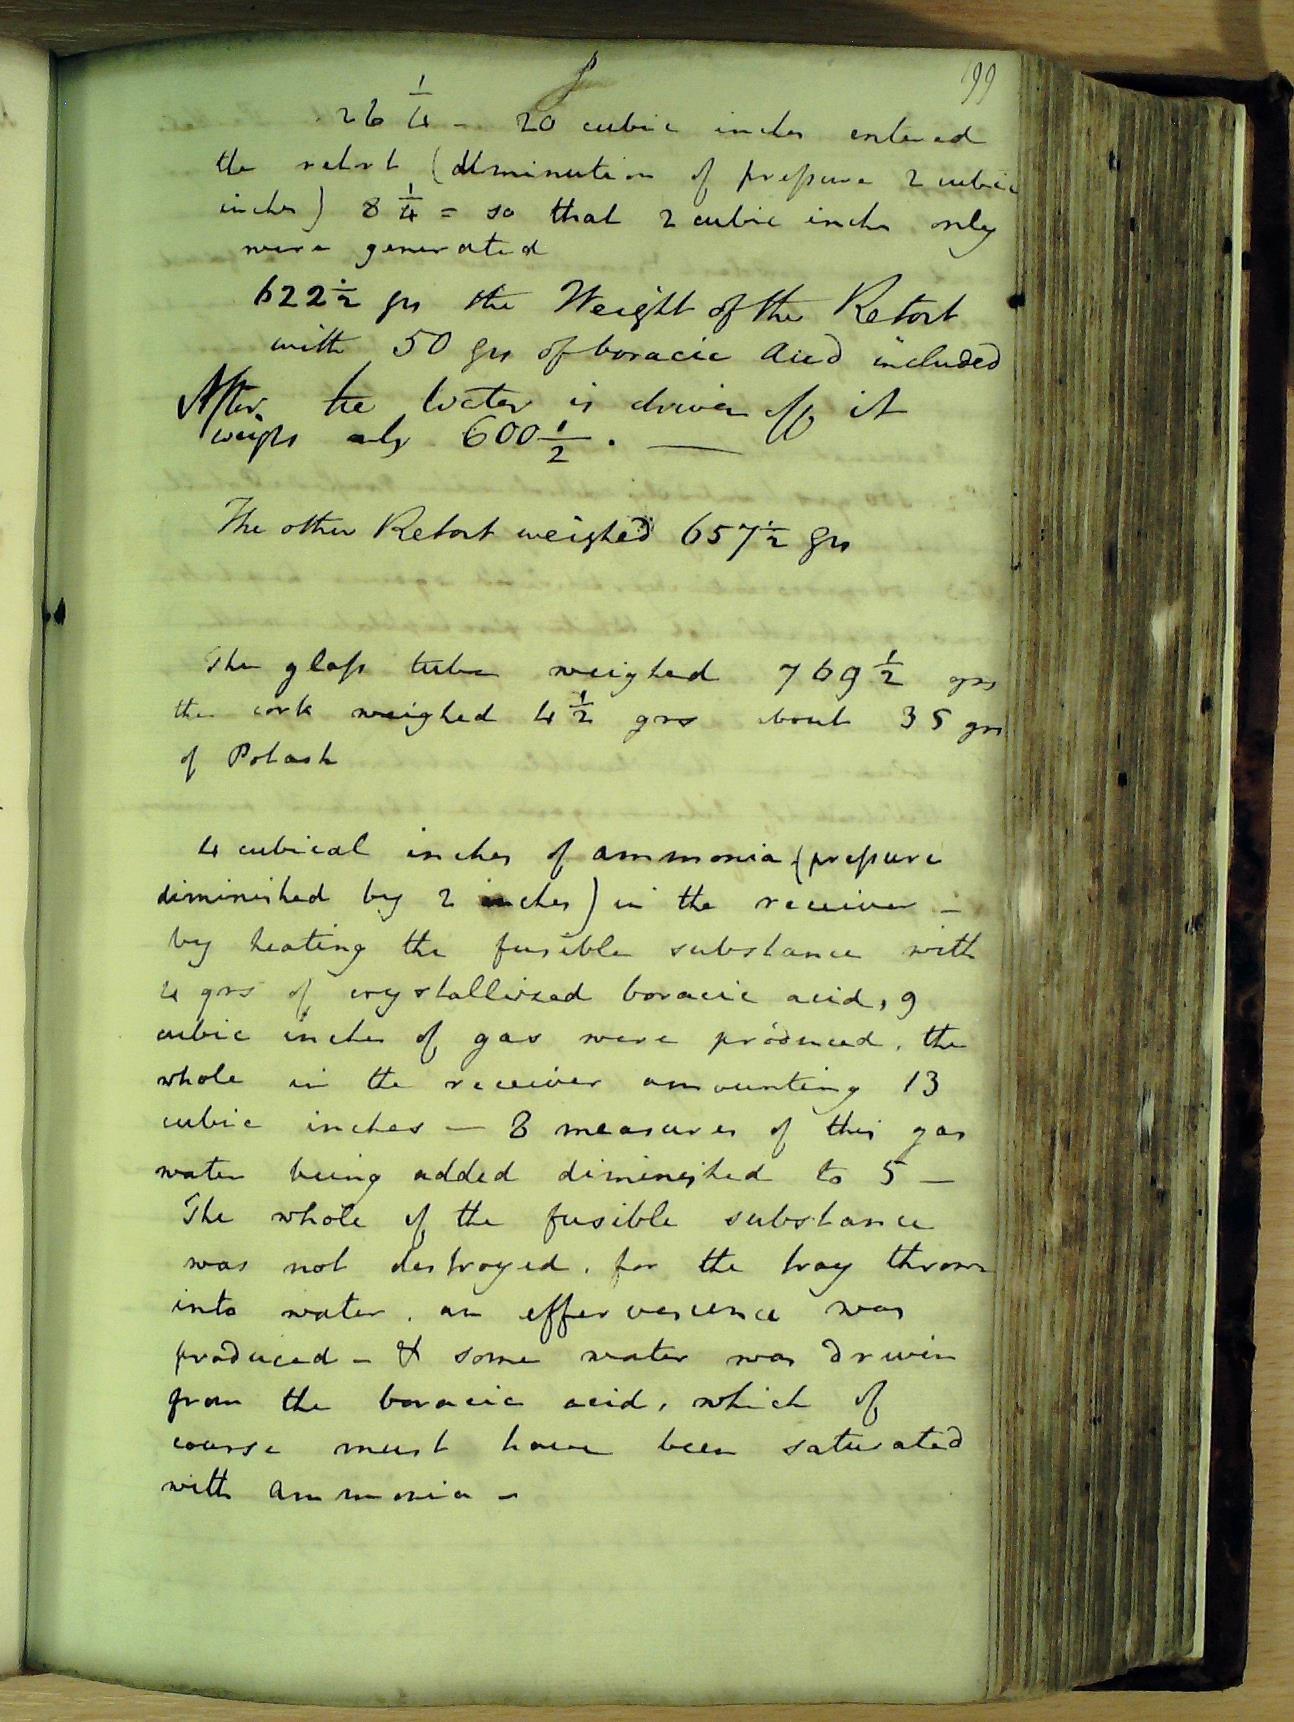 199
26 1/4 - 20 cubic inches entered
the retort (diminution of pressure 2 cubic
inches) 8 1/4 = so that 2 cubic inches only
were generated
622 1/2 grs the Weight of the Retort
with 50 grs of boracic Acid included
After the Water is driven off it
weighs only 600 1/2. —
The other Retort weighed 657 1/2 grs
The glass tube weighed 769 1/2 grs
the cork weighed 4 1/2 grs about 35 grs
of Potash
4 cubical inches of ammonia (pressure
diminished by 2 inches) in the receiver -
by heating the fusible substance with
4 grs of crystallized boracic acid, 9
cubic inches of gas were produced. the
whole in the receiver amounting 13
cubic inches - 8 measures of this gas
water being added diminished to 5 -
The whole of the fusible substance
was not destroyed. for the tray thrown
into water. an effervescence was
produced - & some water was driven
from the boracic acid, which of
course must have been saturated
with ammonia -